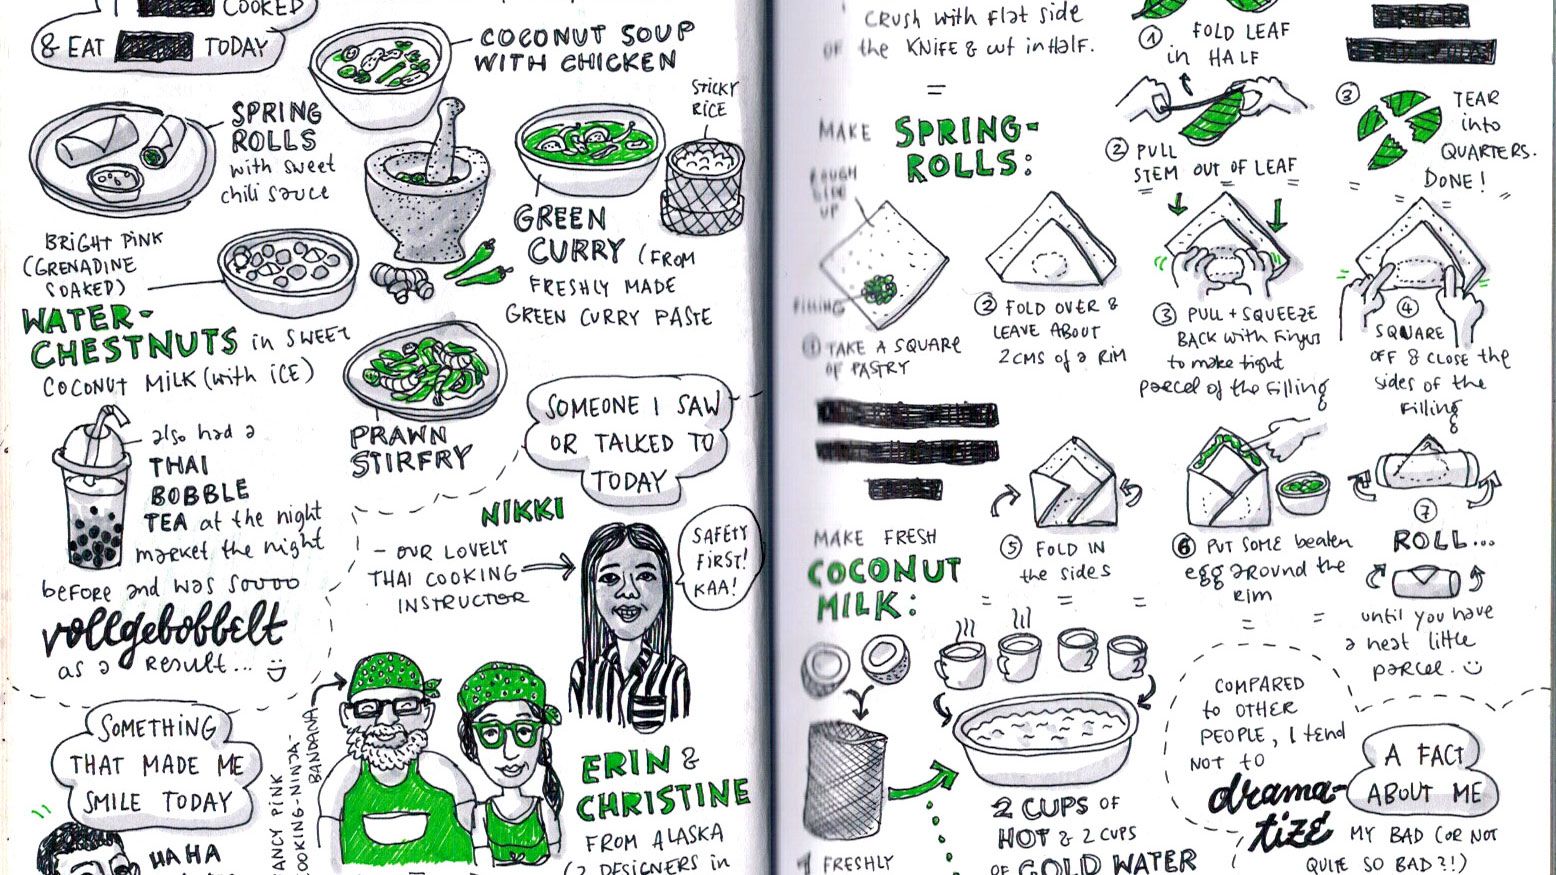 COOKED
& EAT TODAY
COCONUT SOUP
WITH CHICKEN
SPRING
ROLLS
with sweet
chili sauce
STICKY
RICE
GREEN
CURRY (FROM
FRESHLY MADE
GREEN CURRY PASTE
BRIGHT PINK
(GRENADINE
SOAKED)
WATER-
CHESTNUTS in SWEET
COCONUT MILK (with ICE)
PRAWN
STIRFRY
also had a
THAI
BOBBLE
TEA at the night
market the night
before and was soooo
vollgebobbelt
as a result...
SOMEONE I SAW
OR TALKED TO
TODAY
NIKKI
- OUR LOVELY
THAI COOKING
INSTRUCTOR
SAFETY
FIRST!
KAA!
SOMETHING
THAT MADE ME
SMILE TODAY
HAHA
COOKING-NINJA-
BANDANA
ERIN &
CHRISTINE
FROM ALASKA
(2 DESIGNERS in
CRUSH with flat side
OF the KNIFE & cut in half.
=
MAKE SPRING-
ROLLS:
ROUGH
SIDE
UP
FILLING
① TAKE A SQUARE
OF PASTRY
① FOLD LEAF
in HALF
② PULL
STEM OUT OF LEAF
③ TEAR
into
QUARTERS.
DONE!
② FOLD OVER &
LEAVE ABOUT
2CMS of a RIM
③ PULL + SQUEEZE
BACK with Fingers
to make tight
parcel of the Filling
④
SQUARE
OFF & CLOSE the
sides of the
Filling
⑤ FOLD IN
the sides
⑥ PUT SOME beaten
egg around the
RIM
⑦
ROLL...
until you have
a neat little
parcel.
MAKE FRESH
COCONUT
MILK:
1 FRESHLY
2 CUPS OF
HOT & 2 CUPS
OF COLD WATER
COMPARED
to OTHER
PEOPLE, I tend
NOT to
drama-
tize
A FACT
ABOUT ME
MY BAD (OR NOT
QUITE SO BAD?!)